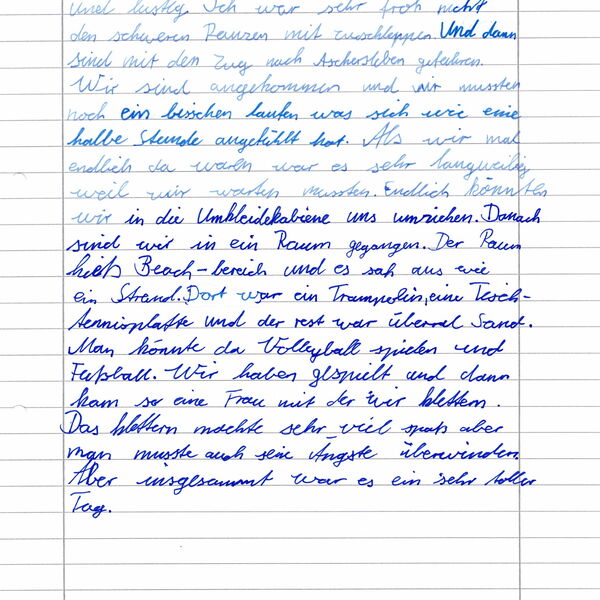 und lustig. Ich war sehr froh nicht
den schweren Ranzen mit zuschleppen. Und dann
sind mit den Zug nach Aschersleben gefahren.
Wir sind angekommen und wir mussten
noch ein bisschen laufen was sich wie eine
halbe Stunde angefühlt hat. Als wir mal
endlich da waren war es sehr langweilig
weil wir warten mussten. Endlich könnten
wir in die Umkleidekabiene uns umziehen. Danach
sind wir in ein Raum gegangen. Der Raum
hieß Beach-bereich und es sah aus wie
ein Strand. Dort war ein Trampolin, eine Tisch-
tennisplatte und der rest war überral Sand.
Man könnte da Volleyball spielen und
Fußball. Wir haben gespielt und dann
kam so eine Frau mit der wir klettern.
Das klettern machte sehr viel spaß aber
man musste auch sein Ängste überwinden.
Aber insgesammt war es ein sehr toller
Tag.